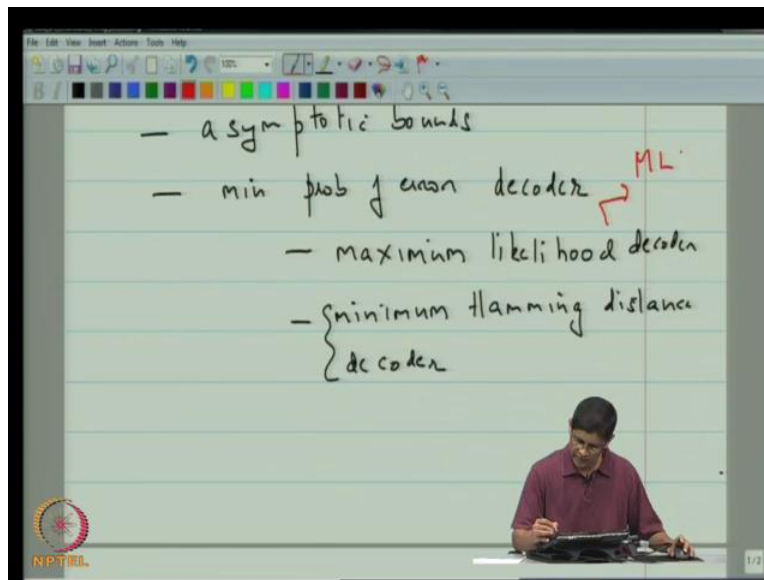 File Edit View Insert Actions Tools Help
100%
B I
— asymptotic bounds
— min prob of error decoder
ML
— maximum likelihood decoder
— { minimum Hamming distance
decoder
NPTEL
1/2